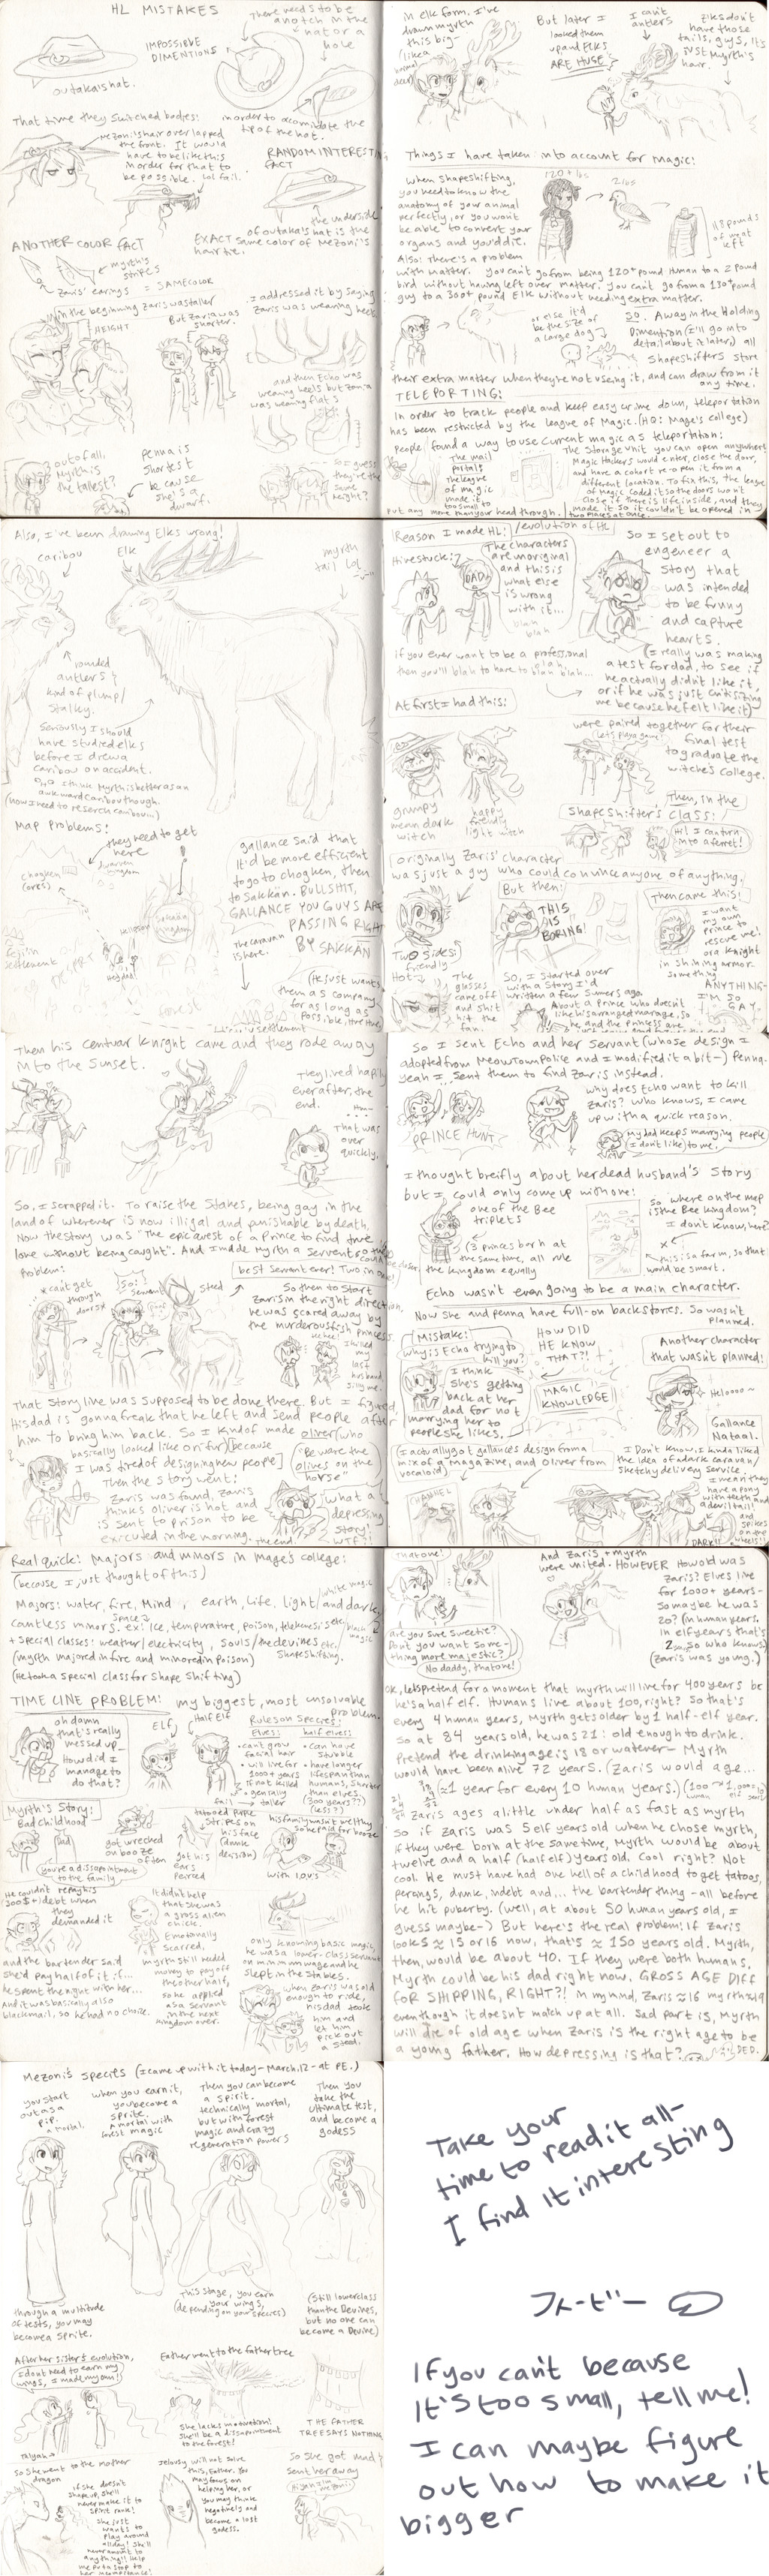 HL MISTAKES
There needs to be
a notch in the
hat or a
hole
IMPOSSIBLE
DIMENTIONS
outaka's hat.
in order to accomidate the
tip of the hat.
That time they switched bodies:
Mezoni's hair overlapped
the front. It would
have to be like this
in order for that to
be possible. lol fail.
RANDOM INTERESTING
FACT
the underside
of outaka's hat is the
EXACT same color of Mezoni's
hair tie.
ANOTHER COLOR FACT
myrth's
stripes
Zaris' earings = SAME COLOR
in the beginning Zaris was taller
HEIGHT
But Zaria was
shorter.
I addressed it by saying
Zaris was wearing heels
and then Echo was
wearing heels but Zaria
was wearing flats
so I guess
they're the
same
height?
out of all,
Myrth is
the tallest?
Penna is
shortest
because
she's a
dwarf.
in elk form, I've
drawn myrth
this big-
(like a
normal
deer)
But later I
looked them
up and Elks
ARE HUGE
I can't
antlers
Elks don't
have those
tails, guys, it's
just Myrth's
hair.
Things I have taken into account for Magic:
When shapeshifting,
you need to know the
anatomy of your animal
perfectly, or you won't
be able to convert your
organs and you'd die.
120+ lbs
2 lbs
118 pounds
of meat
left
Also: There's a problem
with matter. You can't go from being 120+ pound Human to a 2 pound
bird without having left over matter. You can't go from a 130+ pound
guy to a 300+ pound Elk without needing extra matter.
or else it'd
be the size of
a large dog
SO. Away in the Holding
Dimention (I'll go into
detail about it later) all
Shapeshifters store
their extra matter when they're not useing it, and can draw from it
any time.
TELEPORTING:
In order to track people and keep easy crime down, teleportation
has been restricted by the league of Magic. (HQ: Mage's college)
People found a way to use current magic as teleportation:
The mail
portal:
The league
of magic
made it
too small to
put any more than your head through.
The storage unit you can open anywhere
Magic Hackers would enter, close the door,
and have a cohort re-open it from a
different location. To fix this, the league
of Magic coded it so the doors won't
close if there is life inside, and they
made it so it couldn't be opened in
two places at once.
Also, I've been drawing Elks wrong!
caribou
Elk
myrth
tail lol
rounded
antlers &
kind of plump/
Stalky.
Seriously I should
have studied elks
before I drew a
caribou on accident.
I think Myrth is better as an
awkward caribou though.
(now I need to reserch caribou)
Map Problems!
they need to get
here
chogken
(orks)
dwarven
kingdom
sakkan
kingdom
The caravan
is here.
gallance said that
it'd be more efficient
to go to chogken, then
to Sakkan. BULLSHIT,
GALLANCE YOU GUYS ARE
PASSING RIGHT
BY SAKKAN
(He just wants
them as company
for as long as
possible, the
Reason I made HL: / evolution of HL
Hivestuck:
DAD
The characters
are unoriginal
and this is
what else
is wrong
with it...
blah
blah
if you ever want to be a professional
then you'll blah to have to blah blah...
So I set out to
engeneer a
story that
was intended
to be funny
and capture
hearts.
(I really was making
a test for dad, to see if
he actually didn't like it,
or if he was just critisizing
me because he felt like it)
At first I had this:
grumpy
mean dark
witch
happy
friendly
light witch
were paired together for their
(Lets play a game)
final test
to graduate the
witche's college.
Then, in the
Shapeshifter's class:
Hi! I can turn
into a ferret!
Originally Zaris' character
was just a guy who could convince anyone of anything.
Two sides:
friendly
Hot
The
glasses
came off
and shit
hit the
fan.
But then:
THIS
IS
BORING!
So, I started over
with a Story I'd
written a few Sumers ago
About a Prince who doesn't
like his arranged marage, so
he and the princess are
Then came this!
I want
my own
Prince to
rescue me!
or a Knight
in shining armor
something
ANYTHING-
I'M SO
GAY.
Then his centuar knight came and they rode away
into the Sunset.
They lived happily
ever after, the
end.
...Hm...
That was
over
quickly.
So, I scrapped it. To raise the Stakes, being gay in the
land of wherever is now illigal and punishable by death.
Now the story was "The epic quest of a Prince to find true
love without being caught". And I made Myrth a servent so they could be closer,
Problem:
can't get
through
doors
So:
Servent
steed
best servant ever! Two in one!
So then to Start
Zaris in the right direction,
he was scared away by
the murderous fish princess.
I killed
my
last
husband
silly me.
That story line was supposed to be done there. But I figured
His dad is gonna freak that he left and send people after
him to bring him back. So I kind of made oliver (who
basically looked like on fur) [because
I was tired of designing new people]
"Beware the
olives on the
horse"
Then the story went:
Zaris was found, Zaris
thinks Oliver is hot and
is sent to prison to be
executed in the morning. The end
What a
depressing
story!
WTF?!
So I sent Echo and her servant (whose design I
adopted from MeowTownPolice and I modified it a bit-) Penna.
yeah I sent them to find Zaris instead.
PRINCE HUNT
why does Echo want to kill
Zaris? Who knows, I came
up with a quick reason.
My dad keeps marrying people
(I don't like) to me.
I thought breifly about her dead husband's story
but I could only come up with one:
one of the Bee
triplets
(3 princes born at
the same time, all rule
the kingdom equally
So where on the map
is the Bee kingdom?
I don't know, here?
x
this is a farm, so that
would be smart.
Echo wasn't even going to be a main character.
Now she and penna have full-on backstories. So wasn't
planned.
Mistake:
why is Echo trying to
kill you?
I think
she's getting
back at her
dad for not
marrying her to
people she likes.
HOW DID
HE KNOW
THAT?!
MAGIC
KNOWLEDGE
Another character
that wasn't planned!
Helooo~
Gallance
Nataal.
(I actually got gallance's design from a
mix of a magazine, and Oliver from
vocaloid)
I Don't know, I kinda liked
the idea of a dark caravan/
Sketchy delivery service.
I mean they
have a pony
with teeth and
a devil tail!
and
spikes
on the
wheels!
DARK!!
Real quick: Majors and minors in Mage's college:
(because I just thought of this)
Majors: water, fire, Mind, earth, Life, light, and dark,
space
/white magic
/black
magic
countless minors. ex: Ice, tempurature, poison, telekenesis etc.
+ Special classes: weather/electricity, Souls/the devines etc.
Shapeshifting.
(myrth majored in fire and minored in poison)
(He took a special class for Shape Shifting)
TIME LINE PROBLEM! my biggest, most unsolvable
problem.
oh damn
that's really
messed up-
How did I
manage to
do that?
Elf
Half Elf
Rules on Species:
Elves:
• can't grow
facial hair
• will live for
1000+ years
if not killed
• generally
taller
half elves:
• can have
stubble
• have longer
lifespan than
humans, shorter
than elves.
(300 years??)
(less?)
Myrth's Story:
Bad childhood
Dad
you're a dissapointment
to the family
got wrecked
on booze
often
tattooed purple
stripes on
his face
(drunk
decision)
got his
ears
pierced
his family wasn't wealthy
so he paid for booze
with I.O.U's
He couldn't repay his
300$+ debt when
they
demanded it
and the bartender said
she'd pay half of it if...
he spent the night with her...
And it was basically also
blackmail, so he had no choice.
It didn't help
that she was
a gross alien
chick.
Emotionally
scarred,
myrth still needed
money to pay off
the other half,
so he applied
as a servant
in the next
kingdom over.
only knowing basic magic,
he was a lower-class servant
on minimum wage and he
slept in the stables.
when Zaris was old
enough to ride,
his dad took
him and
let him
pick out
a steed.
That one!
are you sure sweetie?
Don't you want some-
thing more majestic?
No daddy, that one!
And Zaris + myrth
were united. HOWEVER How old was
Zaris? Elves live
for 1000+ years-
So maybe he was
20? (in human years.
In elf years that's
2 so who knows)
(Zaris was young.)
ok, lets pretend for a moment that myrth will live for 400 years be
he's a half elf. Humans live about 100, right? So that's
every 4 human years, Myrth gets older by 1 half-elf year.
So at 84 years old, he was 21: old enough to drink.
Pretend the drinking age is 18 or watever- Myrth
would have been alive 72 years. (Zaris would age...
(≈1 year for every 10 human years.)
Zaris ages a little under half as fast as myrth
So if Zaris was 5 elf years old when he chose myrth,
if they were born at the same time, Myrth would be about
twelve and a half (half elf) years old. Cool right? Not
cool. He must have had one hell of a childhood to get tatoos,
percings, drunk, indebt and... the bartender thing - all before
he hit puberty. (well, at about 50 human years old, I
guess maybe-) But here's the real problem! If Zaris
looks ≈ 15 or 16 now, that's ≈ 150 years old. Myrth,
then, would be about 40. If they were both humans,
Myrth could be his dad right now. GROSS AGE DIFF
FOR SHIPPING, RIGHT?! In my mind, Zaris ≈ 16 myrth ≈ 19
even though it doesn't match up at all. Sad part is, Myrth
will die of old age when Zaris is the right age to be
a young father. How depressing is that?
Mezoni's species (I came up with it today - March, 12 - at PE.)
you start
out as a
pip.
a mortal.
when you earn it,
you become a
sprite.
A mortal with
forest magic
Then you can become
a spirit.
technically mortal,
but with forest
magic and crazy
regeneration powers
Then you
take the
Ultimate test,
and become a
godess
through a multitude
of tests, you may
become a sprite.
This stage, you earn
your wings,
(depending on your species)
(Still lower class
than the Devines,
but no one can
become a Devine)
After her sister's evolution,
I dont need to earn my
wings, I made my own!
Talyah→
Father went to the father tree
She lacks motovation!
She'll be a dissapointment
to the forest!
THE FATHER
TREE SAYS NOTHING
So she went to the mother
dragon
if she doesn't
shape up, she'll
never make it to
Spirit rank!
She just
wants to
play around
all day! She'll
never amount to
anything!! Help
me put a stop to
her incompetance!
Jelousy will not solve
this, Father. You
may focus on
helping her, or
you may think
negetively and
become a lost
godess.
So she got mad &
sent her away
Take your
time to read it all-
I find it interesting
フィービー
If you can't because
it's too small, tell me!
I can maybe figure
out how to make it
bigger